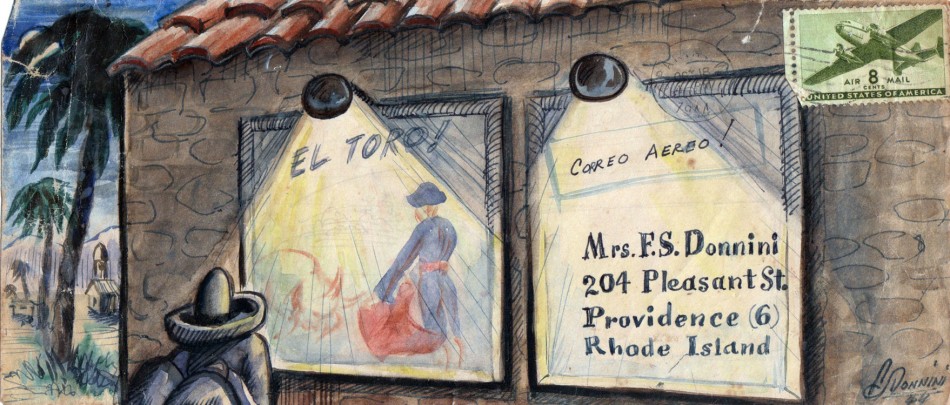 EL TORO!
CORREO AEREO!
Mrs. F.S. Donnini
204 Pleasant St.
Providence (6)
Rhode Island
AIR 8 MAIL
CENTS
UNITED STATES OF AMERICA
DONNINI